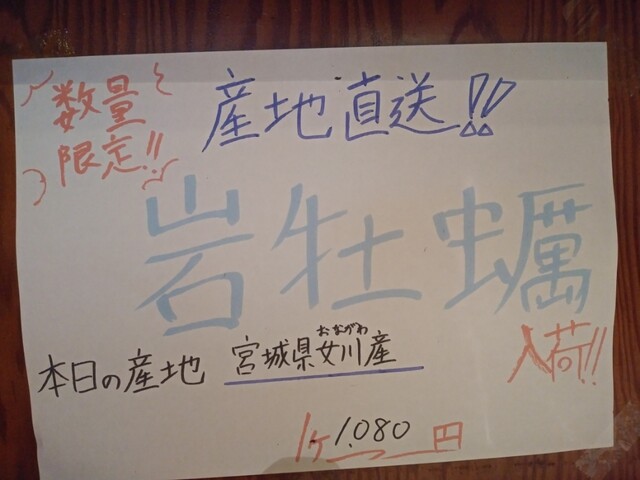 数量
限定!!
産地直送!!
岩牡蠣
入荷!!
おながわ
本日の産地 宮城県女川産
1ヶ 1,080円